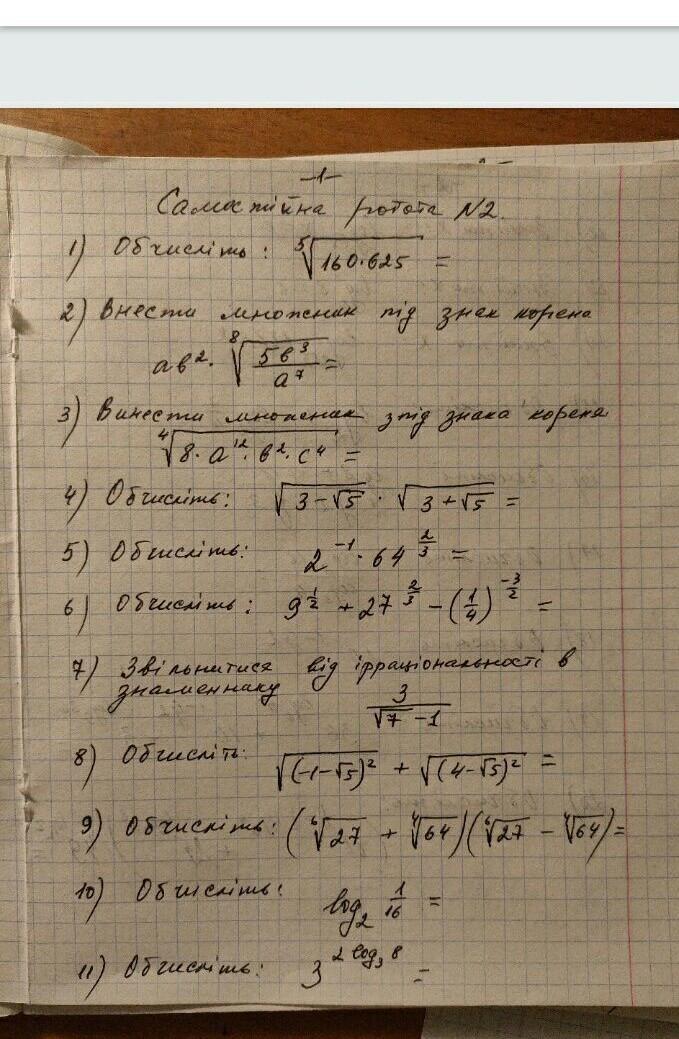 -1-
Самостійна робота N2.
1) Обчисліть: ⁵√(160·625) =
2) Внести множник під знак корена
ab²· ⁸√(5b³/a⁷) =
3) Винести множник з під знака корена
⁴√(8·a¹²·b²·c⁴) =
4) Обчисліть: √(3-√5) · √(3+√5) =
5) Обчисліть: 2⁻¹·64^(2/3) =
6) Обчисліть: 9^(1/2) + 27^(2/3) - (1/4)^(-3/2) =
7) Звільнитися від ірраціональності в
знаменнику 3/(√7 - 1)
8) Обчисліть: √((-1-√5)²) + √((4-√5)²) =
9) Обчисліть: (⁶√27 + ⁴√64)(⁶√27 - ⁴√64) =
10) Обчисліть: log₂ 1/16 =
11) Обчисліть: 3^(2 log₃ 8) =